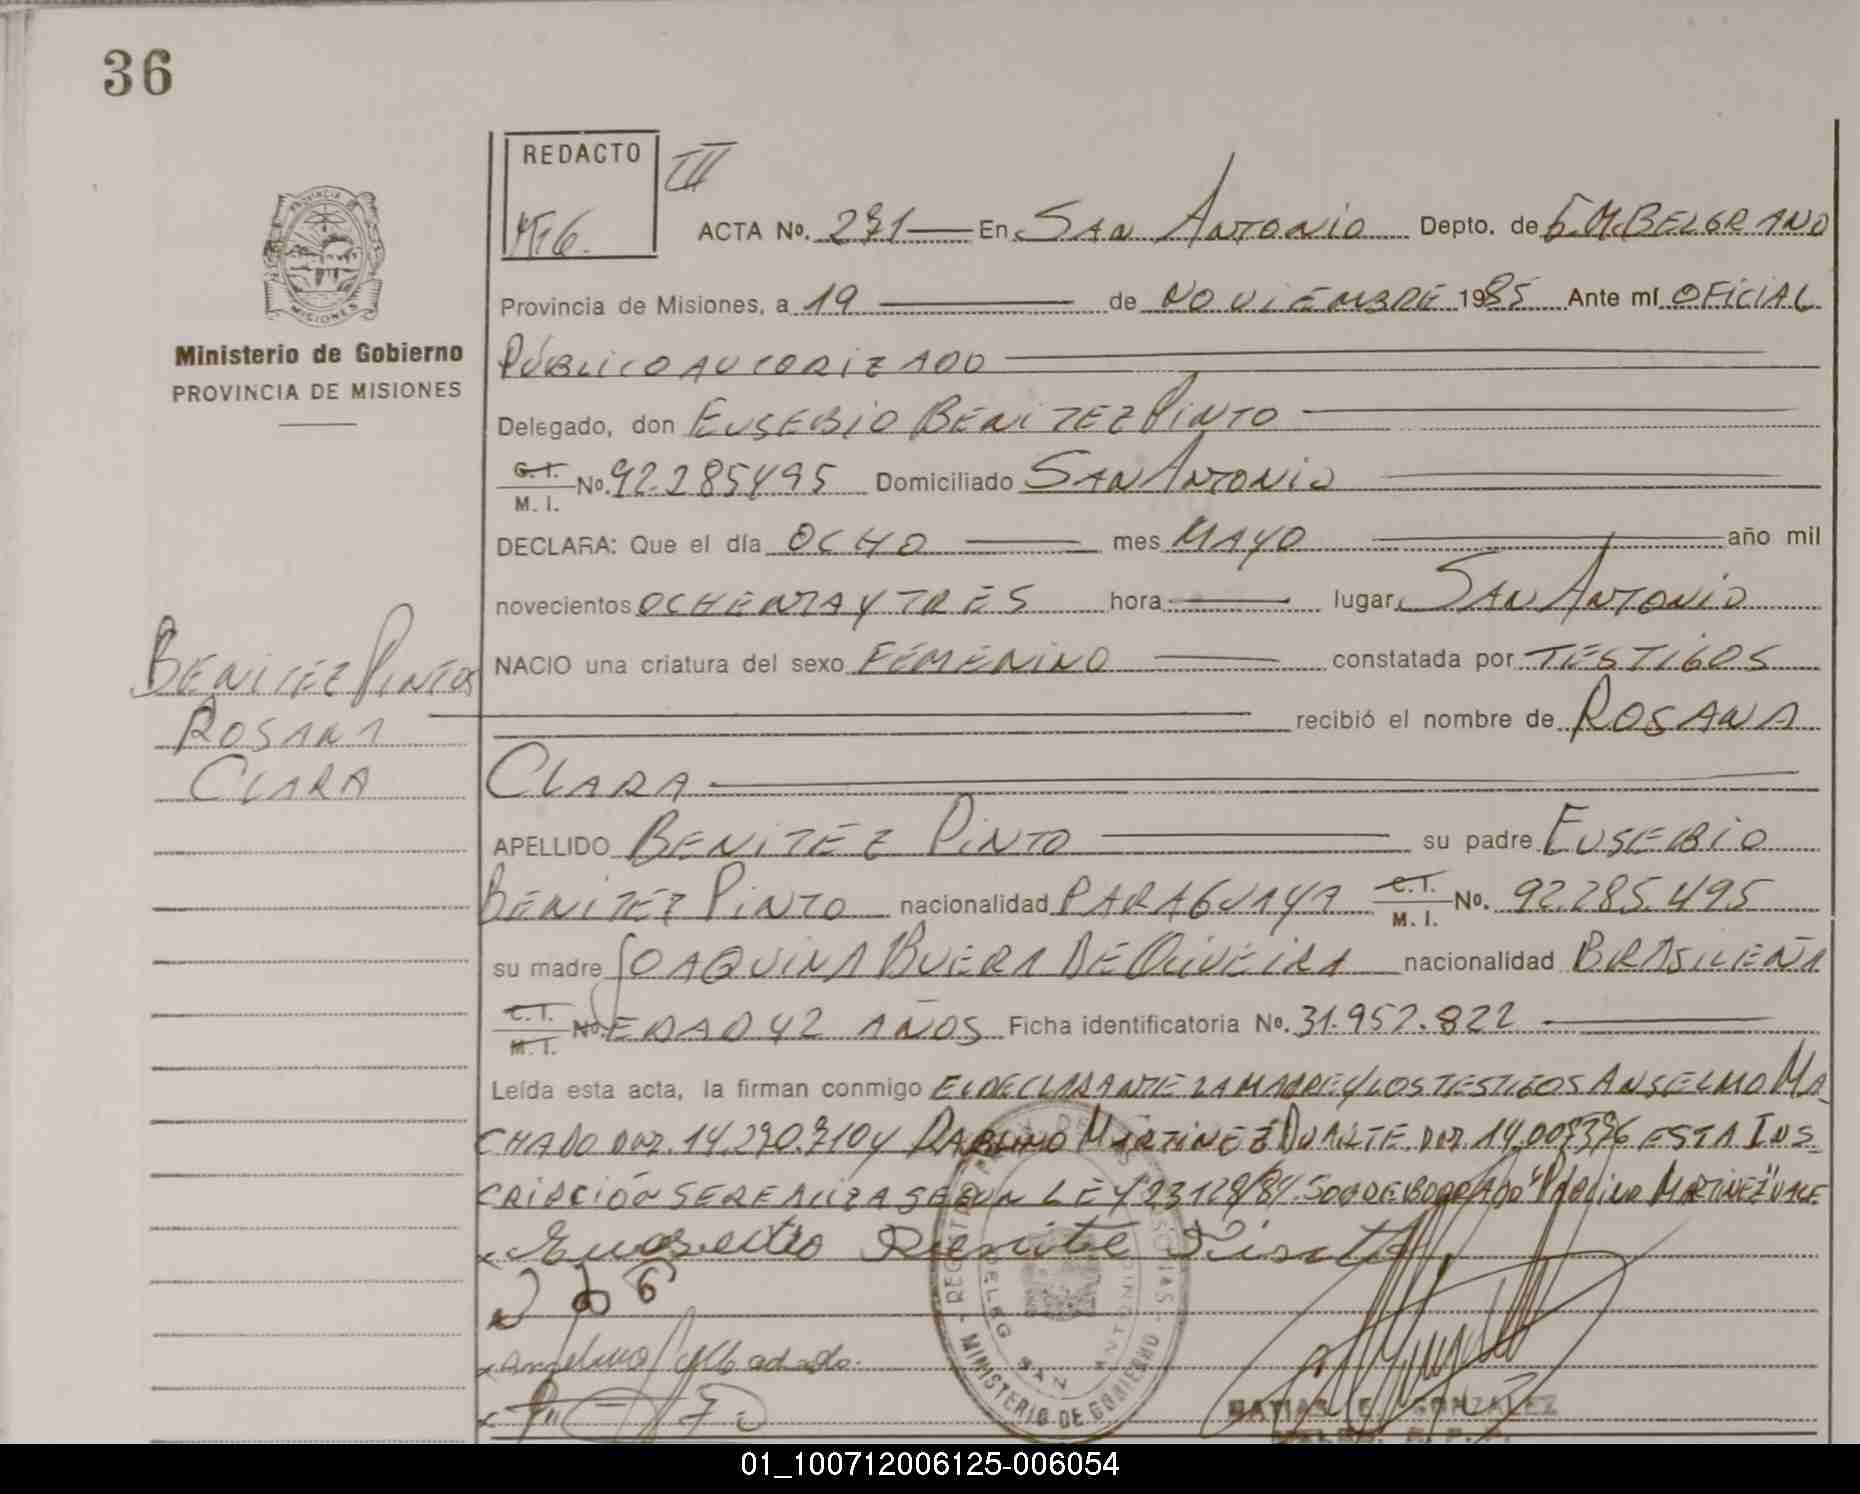 36
REDACTO
III
M.G.
ACTA Nº. 271 En SAN ANTONIO Depto. de G.M.BELGRANO
Provincia de Misiones, a 19 de NOVIEMBRE 1985 Ante mí OFICIAL
PÚBLICO AUTORIZADO
Ministerio de Gobierno
PROVINCIA DE MISIONES
Delegado, don EUSEBIO BENITEZ PINTO
C.I. M.I. Nº. 92.285495 Domiciliado SAN ANTONIO
DECLARA: Que el día OCHO mes MAYO año mil
novecientos OCHENTA Y TRES hora lugar SAN ANTONIO
BENITEZ PINTO
NACIO una criatura del sexo FEMENINO constatada por TESTIGOS
ROSANA
recibió el nombre de ROSANA
CLARA
CLARA
APELLIDO BENITEZ PINTO su padre EUSEBIO
BENITEZ PINTO nacionalidad PARAGUAYA C.I. M.I. Nº. 92.285.495
su madre JOAQUINA BUERA DE OLIVEIRA nacionalidad BRASILEÑA
C.I. M.I. Nº. EDAD 42 AÑOS Ficha identificatoria Nº. 31.957.822
Leída esta acta, la firman conmigo EL DECLARANTE LA MADRE Y LOS TESTIGOS ANSELMO MA
CHADO DNI. 14.290.710 Y MARTINEZ DUARTE DNI. ESTA INS
CRIPCIÓN SE REALIZA SEGUN LEY 23128/84. SOBREBORRADO "MARTINEZ" VALE
Eusebio Benite Pinto
REGISTRO DE LAS PERSONAS
DELEG. SAN ANTONIO
MINISTERIO DE GOBIERNO
MATIAS GONZALEZ
01_100712006125-006054